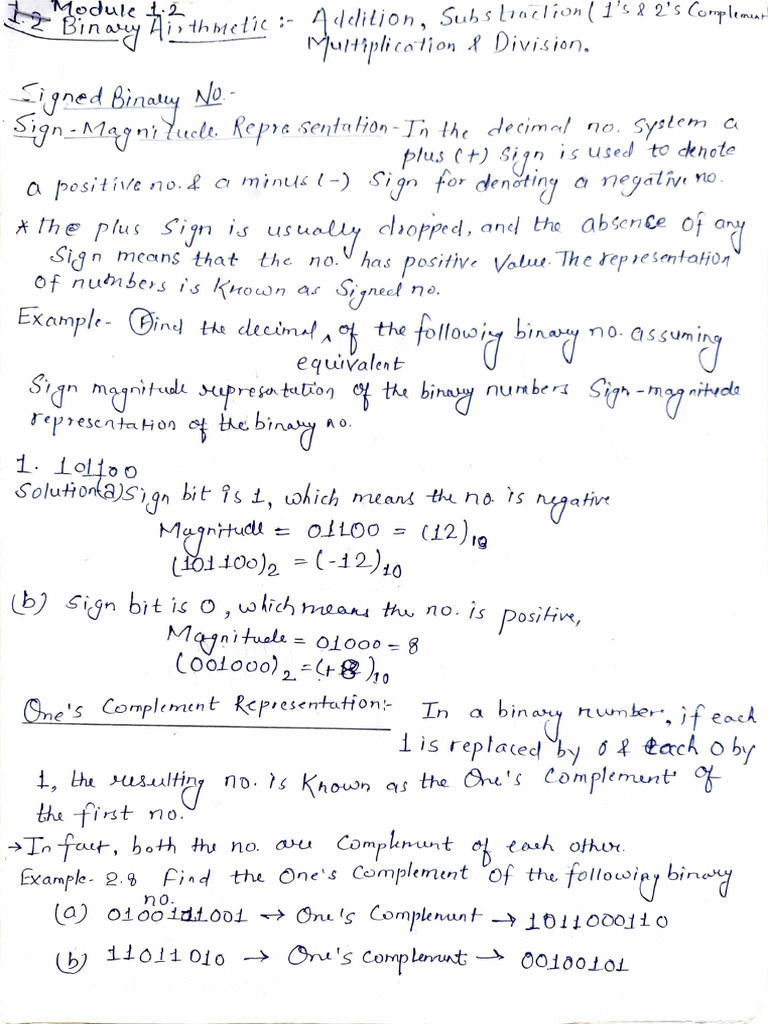 Module 1.2
1.2 Binary Airthmetic :- Addition, Substraction (1's & 2's Complement
Multiplication & Division.
Signed Binary No.-
Sign-Magnitude Representation - In the decimal no. System a
plus (+) sign is used to denote
a positive no. & a minus (-) Sign for denoting a negative no.
* The plus Sign is usually dropped, and the absence of any
Sign means that the no. has positive Value. The representation
of numbers is Known as Signed no.
Example- (1) Find the decimal ^ of the following binary no. assuming
equivalent
Sign magnitude representation of the binary numbers Sign-magnitude
representation of the binary no.
1. 101100
Solution (a) Sign bit is 1, which means the no. is negative
Magnitude = 01100 = (12)10
(101100)2 = (-12)10
(b) Sign bit is 0, which means the no. is positive,
Magnitude = 01000 = 8
(001000)2 = (+8)10
One's Complement Representation:- In a binary number, if each
1 is replaced by 0 & each 0 by
1, the resulting no. is Known as the One's Complement of
the first no.
→ In fact, both the no. are Complement of each other.
Example- 2.8 Find the One's Complement of the following binary
no.
(a) 0100111001 → One's Complement → 1011000110
(b) 11011010 → One's Complement → 00100101